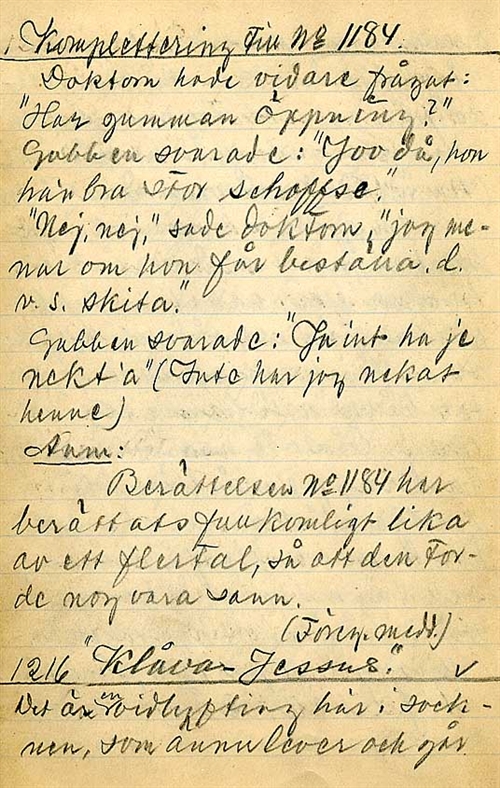 Komplettering Till № 1184.
Doktorn hade vidare frågat:
"Har gumman Öppning?"
Gubben svarade: "Joo då, hon
har bra stor
"Nej, nej," sade doktorn, "jag me-
nar om hon får beställa. d.
v. s. skita."
Gubben svarade: "Ja int ha je
nekt'a" (Inte har jag nekat
henne)
Anm:
Berättelsen № 1184 har
berättats fullkomligt lika
av ett flertal, så att den tor-
de nog vara sann.
(Föreg. medd.)
1216 "Klåva-Jessus."
Det är en vidlyfting här i sock-
nen, som ännu lever och går